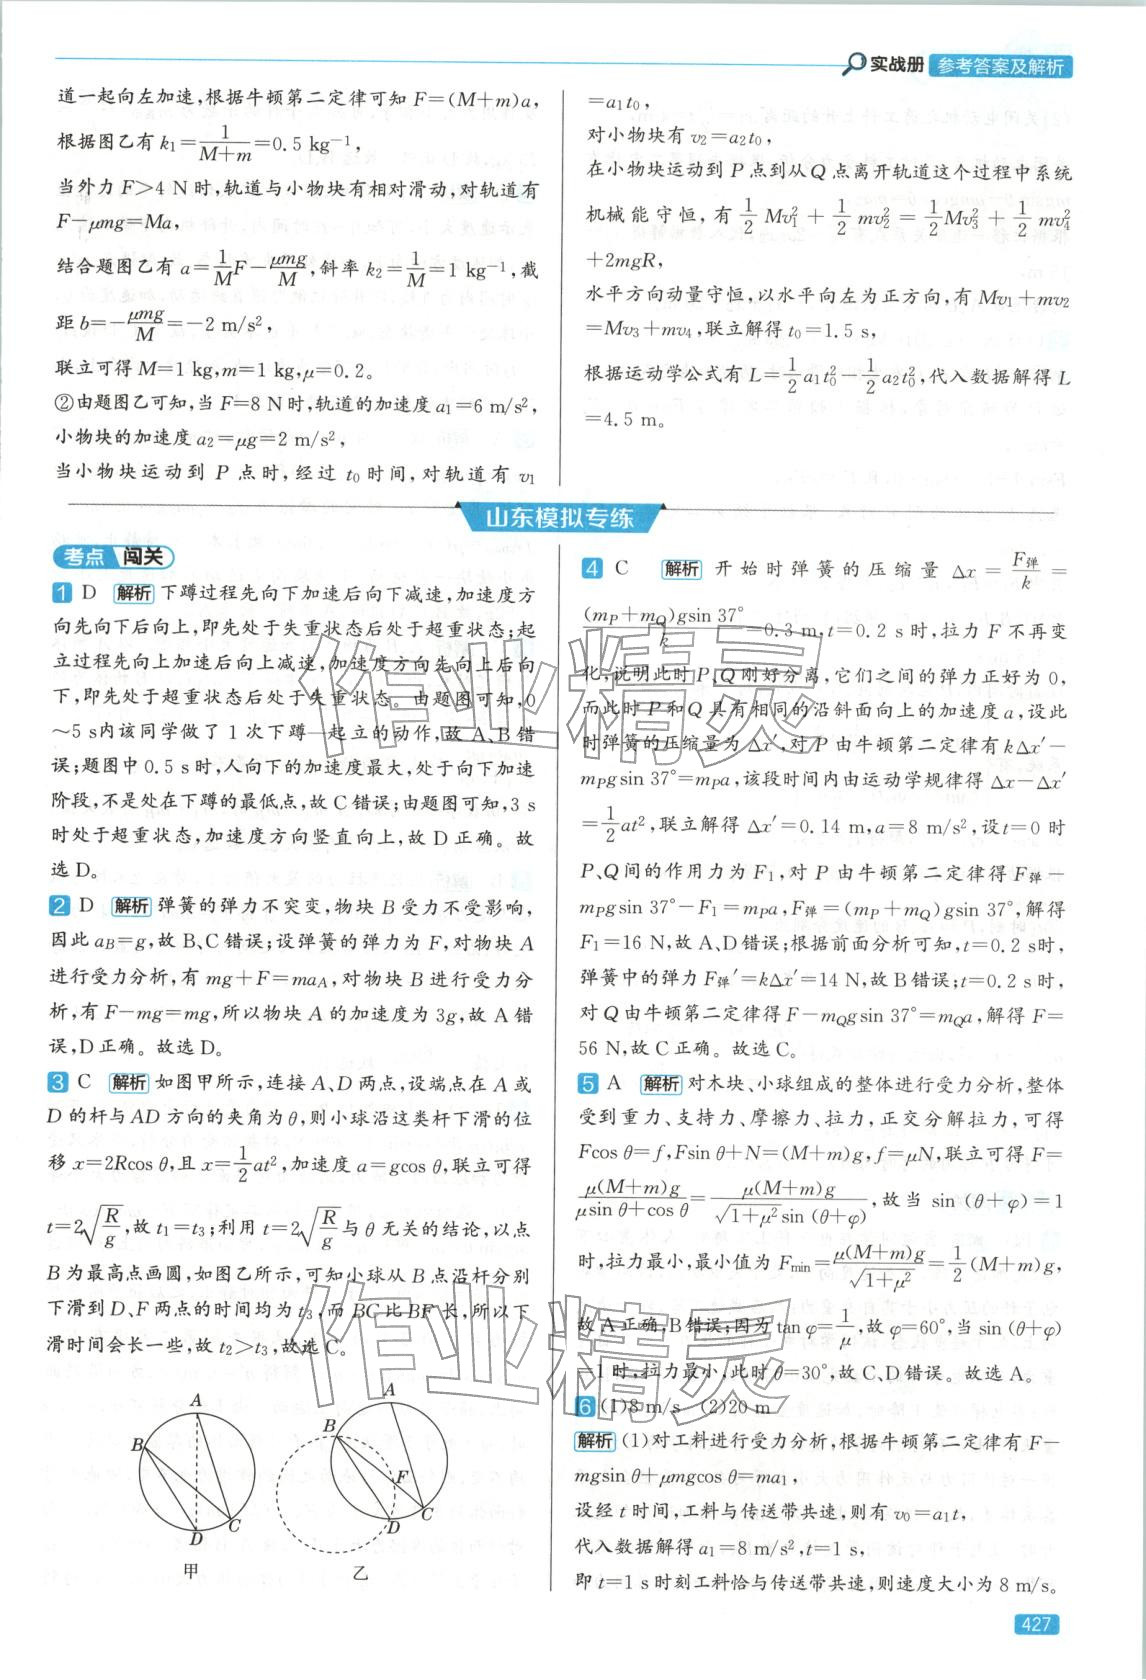 实战册 参考答案及解析
道一起向左加速，根据牛顿第二定律可知 F＝(M＋m)a，
根据图乙有 k₁＝1/(M＋m)＝0.5 kg⁻¹，
当外力 F＞4 N 时，轨道与小物块有相对滑动，对轨道有
F－μmg＝Ma，
结合题图乙有 a＝(1/M)F－μmg/M，斜率 k₂＝1/M＝1 kg⁻¹，截
距 b＝－μmg/M＝－2 m/s²，
联立可得 M＝1 kg，m＝1 kg，μ＝0.2。
②由题图乙可知，当 F＝8 N 时，轨道的加速度 a₁＝6 m/s²，
小物块的加速度 a₂＝μg＝2 m/s²，
当小物块运动到 P 点时，经过 t₀ 时间，对轨道有 v₁
＝a₁t₀，
对小物块有 v₂＝a₂t₀，
在小物块运动到 P 点到从 Q 点离开轨道这个过程中系统
机械能守恒，有 1/2 Mv₁²＋1/2 mv₂²＝1/2 Mv₃²＋1/2 mv₄²
＋2mgR，
水平方向动量守恒，以水平向左为正方向，有 Mv₁＋mv₂
＝Mv₃＋mv₄，联立解得 t₀＝1.5 s，
根据运动学公式有 L＝1/2 a₁t₀²－1/2 a₂t₀²，代入数据解得 L
＝4.5 m。
山东模拟专练
考点 闯关
1 D 解析 下蹲过程先向下加速后向下减速，加速度方
向先向下后向上，即先处于失重状态后处于超重状态；起
立过程先向上加速后向上减速，加速度方向先向上后向
下，即先处于超重状态后处于失重状态。由题图可知，0
～5 s内该同学做了 1 次下蹲—起立的动作，故 A、B 错
误；题图中 0.5 s时，人向下的加速度最大，处于向下加速
阶段，不是处在下蹲的最低点，故 C 错误；由题图可知，3 s
时处于超重状态，加速度方向竖直向上，故 D 正确。故
选 D。
2 D 解析 弹簧的弹力不突变，物块 B 受力不受影响，
因此 aB＝g，故 B、C 错误；设弹簧的弹力为 F，对物块 A
进行受力分析，有 mg＋F＝maA，对物块 B 进行受力分
析，有 F－mg＝mg，所以物块 A 的加速度为 3g，故 A 错
误，D 正确。故选 D。
3 C 解析 如图甲所示，连接 A、D 两点，设端点在 A 或
D 的杆与 AD 方向的夹角为 θ，则小球沿这类杆下滑的位
移 x＝2Rcos θ，且 x＝1/2 at²，加速度 a＝gcos θ，联立可得
t＝2√(R/g)，故 t₁＝t₃；利用 t＝2√(R/g)与 θ 无关的结论，以点
B 为最高点画圆，如图乙所示，可知小球从 B 点沿杆分别
下滑到 D、F 两点的时间均为 t₃，而 BC 比 BF 长，所以下
滑时间会长一些，故 t₂＞t₃，故选 C。
A
B
C
D
甲
A
B
F
C
D
乙
4 C 解析 开始时弹簧的压缩量 Δx＝F弹/k＝
(mP＋mQ)gsin 37°/k＝0.3 m，t＝0.2 s 时，拉力 F 不再变
化，说明此时 P、Q 刚好分离，它们之间的弹力正好为 0，
而此时 P 和 Q 具有相同的沿斜面向上的加速度 a，设此
时弹簧的压缩量为 Δx′，对 P 由牛顿第二定律有 kΔx′－
mPgsin 37°＝mPa，该段时间内由运动学规律得 Δx－Δx′
＝1/2 at²，联立解得 Δx′＝0.14 m，a＝8 m/s²，设 t＝0 时
P、Q间的作用力为 F₁，对 P 由牛顿第二定律得 F弹－
mPgsin 37°－F₁＝mPa，F弹＝(mP＋mQ)gsin 37°，解得
F₁＝16 N，故 A、D错误；根据前面分析可知，t＝0.2 s时，
弹簧中的弹力 F弹′＝kΔx′＝14 N，故 B 错误；t＝0.2 s 时，
对 Q 由牛顿第二定律得 F－mQgsin 37°＝mQa，解得 F＝
56 N，故 C 正确。故选 C。
5 A 解析 对木块、小球组成的整体进行受力分析，整体
受到重力、支持力、摩擦力、拉力，正交分解拉力，可得
Fcos θ＝f，Fsin θ＋N＝(M＋m)g，f＝μN，联立可得 F＝
μ(M＋m)g/(μsin θ＋cos θ)＝μ(M＋m)g/(√(1＋μ²)sin (θ＋φ))，故当 sin (θ＋φ)＝1
时，拉力最小，最小值为 Fmin＝μ(M＋m)g/√(1＋μ²)＝1/2 (M＋m)g，
故 A 正确，B 错误；因为 tan φ＝1/μ，故 φ＝60°，当 sin (θ＋φ)
＝1 时，拉力最小，此时 θ＝30°，故 C、D 错误。故选 A。
6 (1)8 m/s (2)20 m
解析 (1)对工料进行受力分析，根据牛顿第二定律有 F－
mgsin θ＋μmgcos θ＝ma₁，
设经 t 时间，工料与传送带共速，则有 v₀＝a₁t，
代入数据解得 a₁＝8 m/s²，t＝1 s，
即 t＝1 s 时刻工料恰与传送带共速，则速度大小为 8 m/s。
427
作业精灵
作业精灵